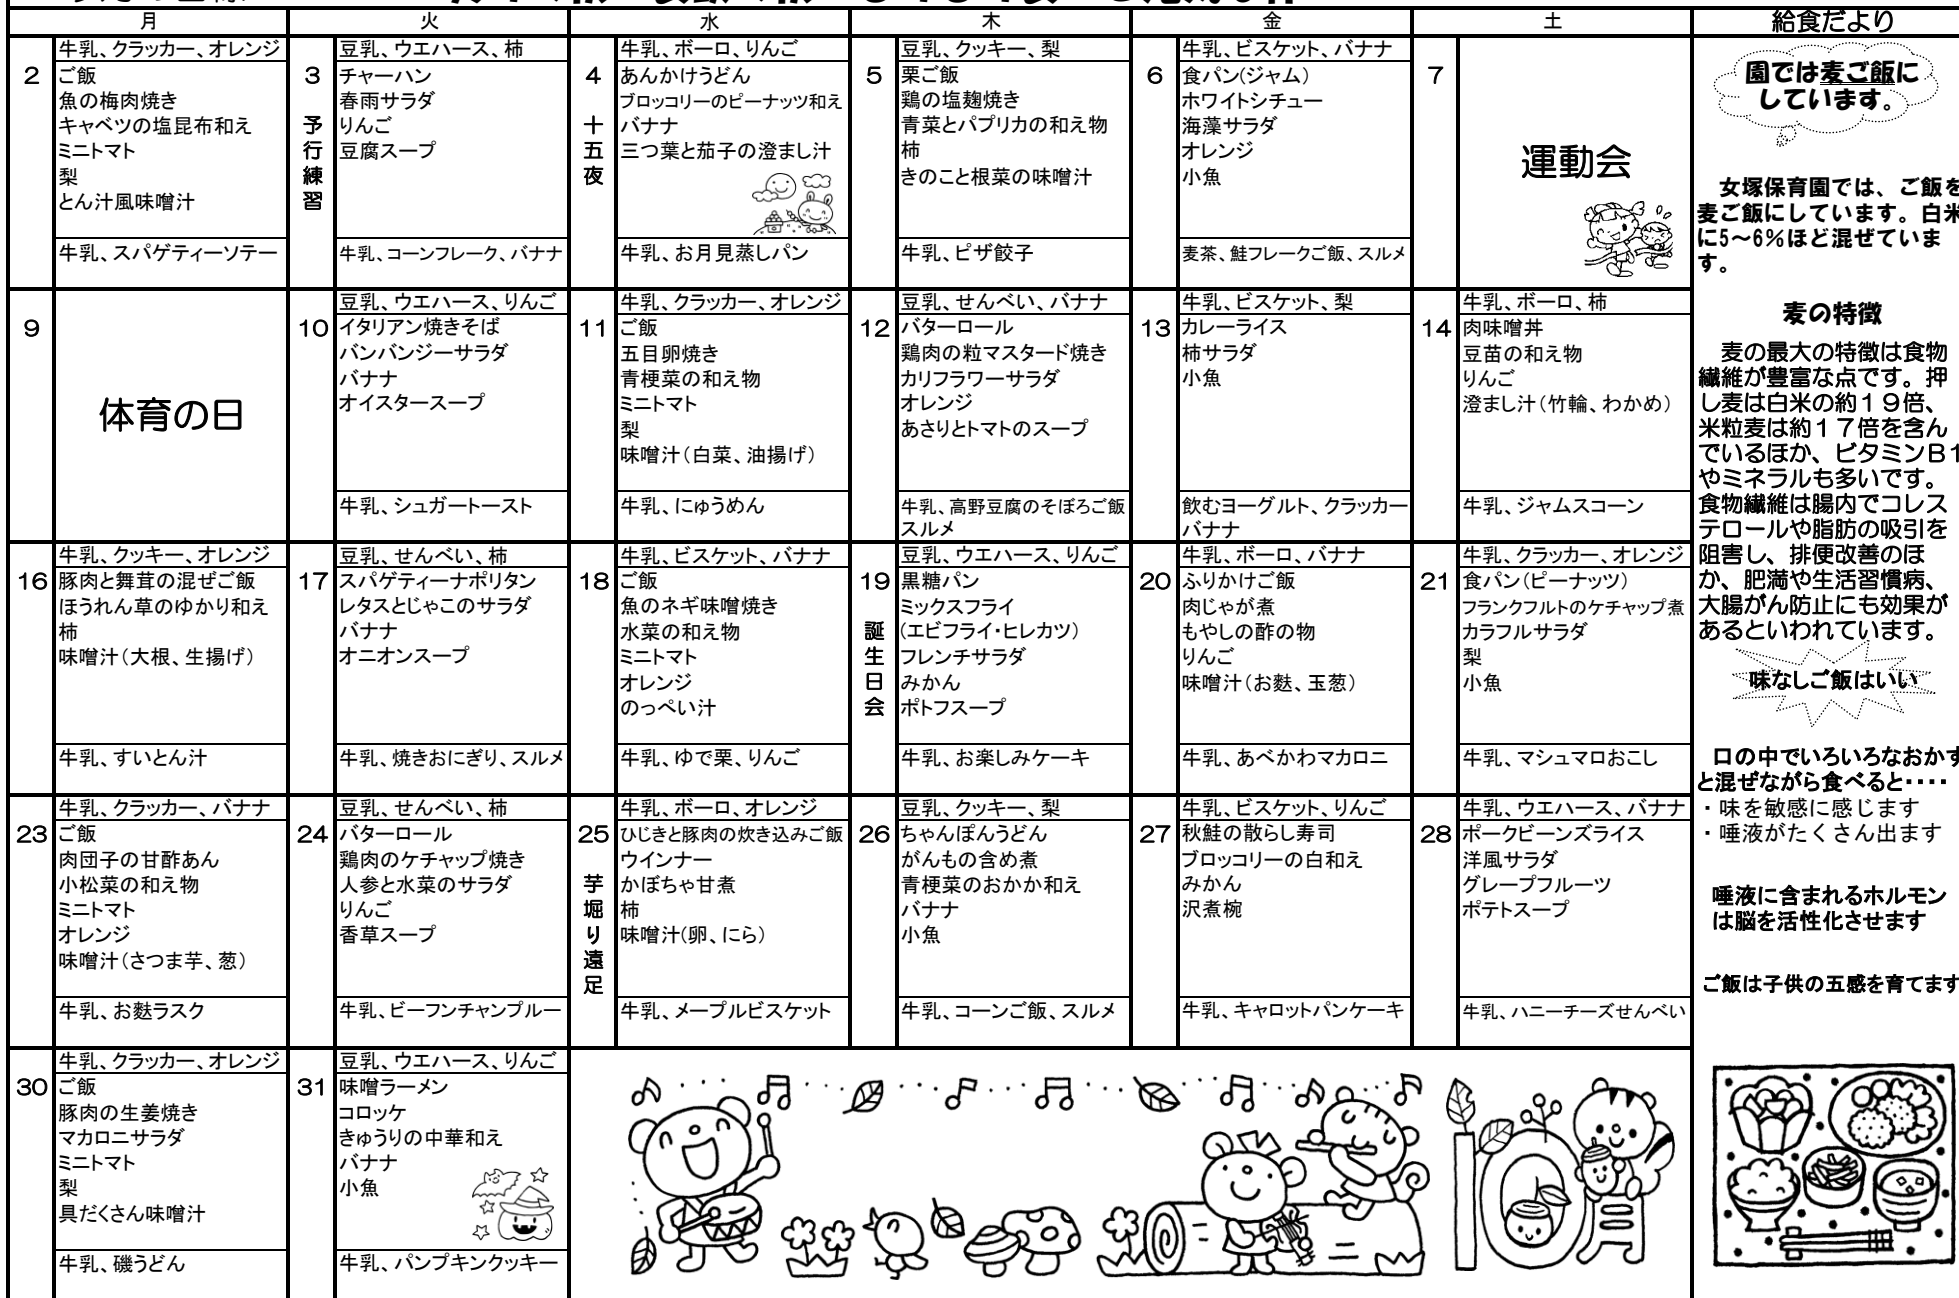 月 火 水 木 金 土 給食だより
牛乳、クラッカー、オレンジ
2
ご飯
魚の梅肉焼き
キャベツの塩昆布和え
ミニトマト
梨
とん汁風味噌汁
牛乳、スパゲティーソテー
豆乳、ウエハース、柿
3
予行練習
チャーハン
春雨サラダ
りんご
豆腐スープ
牛乳、コーンフレーク、バナナ
牛乳、ボーロ、りんご
4
十五夜
あんかけうどん
ブロッコリーのピーナッツ和え
バナナ
三つ葉と茄子の澄まし汁
牛乳、お月見蒸しパン
豆乳、クッキー、梨
5
栗ご飯
鶏の塩麹焼き
青菜とパプリカの和え物
柿
きのこと根菜の味噌汁
牛乳、ピザ餃子
牛乳、ビスケット、バナナ
6
食パン(ジャム)
ホワイトシチュー
海藻サラダ
オレンジ
小魚
麦茶、鮭フレークご飯、スルメ
7
運動会
9
体育の日
豆乳、ウエハース、りんご
10
イタリアン焼きそば
バンバンジーサラダ
バナナ
オイスタースープ
牛乳、シュガートースト
牛乳、クラッカー、オレンジ
11
ご飯
五目卵焼き
青梗菜の和え物
ミニトマト
梨
味噌汁（白菜、油揚げ）
牛乳、にゅうめん
豆乳、せんべい、バナナ
12
バターロール
鶏肉の粒マスタード焼き
カリフラワーサラダ
オレンジ
あさりとトマトのスープ
牛乳、高野豆腐のそぼろご飯
スルメ
牛乳、ビスケット、梨
13
カレーライス
柿サラダ
小魚
飲むヨーグルト、クラッカー
バナナ
牛乳、ボーロ、柿
14
肉味噌丼
豆苗の和え物
りんご
澄まし汁（竹輪、わかめ）
牛乳、ジャムスコーン
牛乳、クッキー、オレンジ
16
豚肉と舞茸の混ぜご飯
ほうれん草のゆかり和え
柿
味噌汁（大根、生揚げ）
牛乳、すいとん汁
豆乳、せんべい、柿
17
スパゲティーナポリタン
レタスとじゃこのサラダ
バナナ
オニオンスープ
牛乳、焼きおにぎり、スルメ
牛乳、ビスケット、バナナ
18
ご飯
魚のネギ味噌焼き
水菜の和え物
ミニトマト
オレンジ
のっぺい汁
牛乳、ゆで栗、りんご
豆乳、ウエハース、りんご
19
誕生日会
黒糖パン
ミックスフライ
（エビフライ・ヒレカツ）
フレンチサラダ
みかん
ポトフスープ
牛乳、お楽しみケーキ
牛乳、ボーロ、バナナ
20
ふりかけご飯
肉じゃが煮
もやしの酢の物
りんご
味噌汁（お麩、玉葱）
牛乳、あべかわマカロニ
牛乳、クラッカー、オレンジ
21
食パン（ピーナッツ）
フランクフルトのケチャップ煮
カラフルサラダ
梨
小魚
牛乳、マシュマロおこし
牛乳、クラッカー、バナナ
23
ご飯
肉団子の甘酢あん
小松菜の和え物
ミニトマト
オレンジ
味噌汁（さつま芋、葱）
牛乳、お麩ラスク
豆乳、せんべい、柿
24
バターロール
鶏肉のケチャップ焼き
人参と水菜のサラダ
りんご
香草スープ
牛乳、ビーフンチャンプルー
牛乳、ボーロ、オレンジ
25
芋堀り遠足
ひじきと豚肉の炊き込みご飯
ウインナー
かぼちゃ甘煮
柿
味噌汁(卵、にら)
牛乳、メープルビスケット
豆乳、クッキー、梨
26
ちゃんぽんうどん
がんもの含め煮
青梗菜のおかか和え
バナナ
小魚
牛乳、コーンご飯、スルメ
牛乳、ビスケット、りんご
27
秋鮭の散らし寿司
ブロッコリーの白和え
みかん
沢煮椀
牛乳、キャロットパンケーキ
牛乳、ウエハース、バナナ
28
ポークビーンズライス
洋風サラダ
グレープフルーツ
ポテトスープ
牛乳、ハニーチーズせんべい
牛乳、クラッカー、オレンジ
30
ご飯
豚肉の生姜焼き
マカロニサラダ
ミニトマト
梨
具だくさん味噌汁
牛乳、磯うどん
豆乳、ウエハース、りんご
31
味噌ラーメン
コロッケ
きゅうりの中華和え
バナナ
小魚
牛乳、パンプキンクッキー
10月
園では麦ご飯に
しています。
女塚保育園では、ご飯を
麦ご飯にしています。白米
に5～6%ほど混ぜていま
す。
麦の特徴
麦の最大の特徴は食物
繊維が豊富な点です。押
し麦は白米の約１９倍、
米粒麦は約１７倍を含ん
でいるほか、ビタミンＢ１
やミネラルも多いです。
食物繊維は腸内でコレス
テロールや脂肪の吸引を
阻害し、排便改善のほ
か、肥満や生活習慣病、
大腸がん防止にも効果が
あるといわれています。
味なしご飯はいい
口の中でいろいろなおかず
と混ぜながら食べると････
・味を敏感に感じます
・唾液がたくさん出ます
唾液に含まれるホルモン
は脳を活性化させます
ご飯は子供の五感を育てます